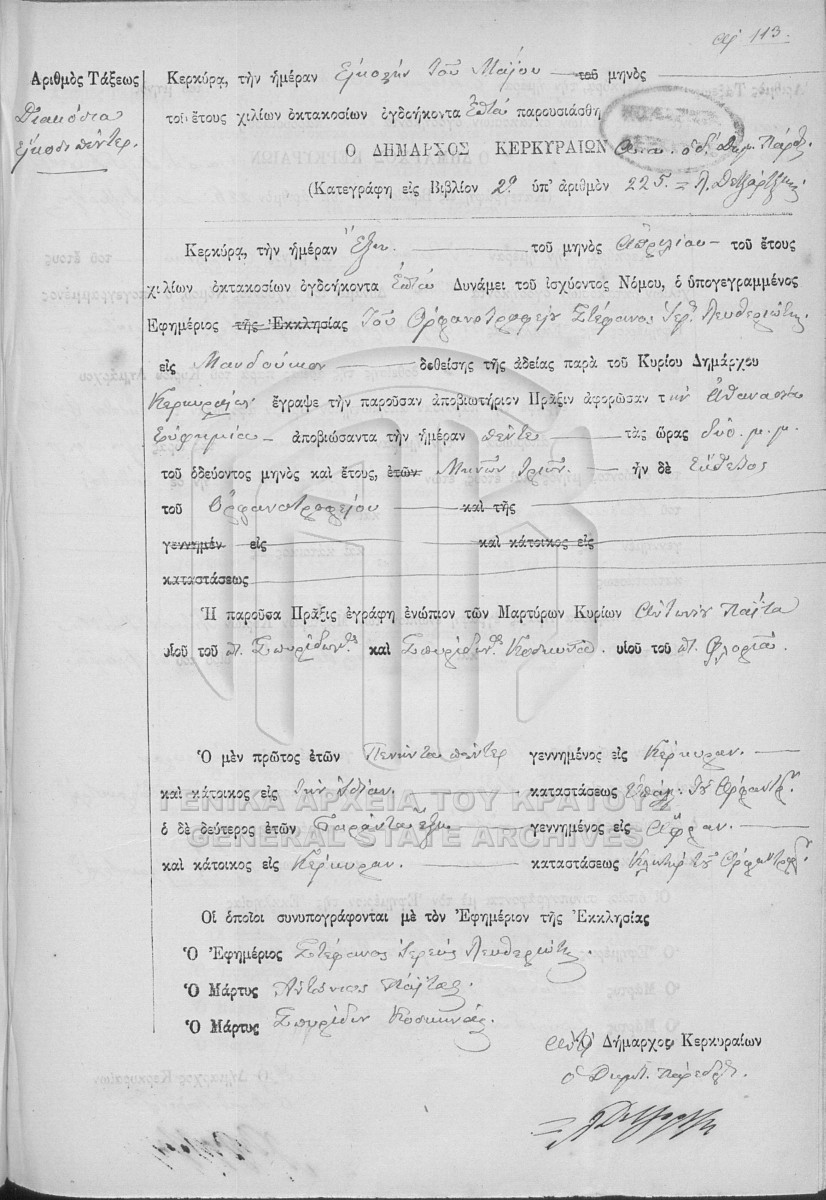 αρ 113.
Ἀριθμὸς Τάξεως
Διακόσια
εἴκοσι πέντε.
Κερκύρᾳ, τὴν ἡμέραν Εἰκοστὴν τοῦ Μαΐου τοῦ μηνὸς
τοῦ ἔτους χιλίων ὀκτακοσίων ὀγδοήκοντα Ἑπτὰ παρουσιάσθη
Ο ΔΗΜΑΡΧΟΣ ΚΕΡΚΥΡΑΙΩΝ
(Κατεγράφη εἰς Βιβλίον 2ον ὑπ' ἀριθμὸν 225.
Κερκύρᾳ, τὴν ἡμέραν Ἕξην τοῦ μηνὸς Ἀπριλίου τοῦ ἔτους
χιλίων ὀκτακοσίων ὀγδοήκοντα Ἑπτὰ Δυνάμει τοῦ ἰσχύοντος Νόμου, ὁ ὑπογεγραμμένος
Ἐφημέριος τῆς Ἐκκλησίας Τοῦ Ὀρφανοτροφείου Στέφανος Ἱερ. Λευθεριώτης
εἰς Μανδούκιον δοθείσης τῆς ἀδείας παρὰ τοῦ Κυρίου Δημάρχου
Κερκυραίων ἔγραψε τὴν παροῦσαν ἀποβιωτήριον Πρᾶξιν ἀφορῶσαν τὴν Ἀθανασία
Εὐφημία ἀποβιώσαντα τὴν ἡμέραν πέντε τὰς ὥρας δύο μ. μ.
τοῦ ὁδεύοντος μηνὸς καὶ ἔτους, ἐτῶν Μηνῶν τριῶν. ἦν δὲ Εὔθετος
τοῦ Ὀρφανοτροφείου καὶ τῆς
γεννημέν εἰς καὶ κάτοικος εἰς
καταστάσεως
Ἡ παροῦσα Πρᾶξις ἐγράφη ἐνώπιον τῶν Μαρτύρων Κυρίων Ἀντωνίου Παΐτα
υἱοῦ τοῦ π. Σπυρίδωνος καὶ Σπυρίδων Κοσκινᾶ υἱοῦ τοῦ π. Φλοριᾶ.
Ὁ μὲν πρῶτος ἐτῶν Πενήντα πέντε γεννημένος εἰς Κέρκυραν.
καὶ κάτοικος εἰς τὴν ἰδίαν. καταστάσεως Ὑπάλ. τοῦ Ὀρφαντρ.
ὁ δὲ δεύτερος ἐτῶν Σαράντα ἕξη γεννημένος εἰς
καὶ κάτοικος εἰς Κέρκυραν. καταστάσεως Κλητὴρ τοῦ Ὀρφαντροφ.
ΓΕΝΙΚΑ ΑΡΧΕΙΑ ΤΟΥ ΚΡΑΤΟΥΣ
GENERAL STATE ARCHIVES
Οἱ ὁποῖοι συνυπογράφονται μὲ τὸν Ἐφημέριον τῆς Ἐκκλησίας
Ὁ Ἐφημέριος Στέφανος Ἱερεὺς Λευθεριώτης.
Ὁ Μάρτυς Ἀντώνιος Παΐτας.
Ὁ Μάρτυς Σπυρίδων Κοσκινάς.
Ὁ Δήμαρχος Κερκυραίων
ὁ Δημτ. Πάρεδρ.